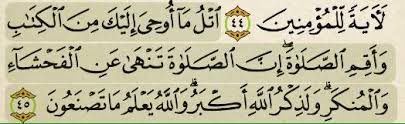 لَأٓيَةً لِّلۡمُؤۡمِنِينَ ٤٤ ٱتۡلُ مَآ أُوحِيَ إِلَيۡكَ مِنَ ٱلۡكِتَٰبِ
وَأَقِمِ ٱلصَّلَوٰةَۖ إِنَّ ٱلصَّلَوٰةَ تَنۡهَىٰ عَنِ ٱلۡفَحۡشَآءِ
وَٱلۡمُنكَرِۗ وَلَذِكۡرُ ٱللَّهِ أَكۡبَرُۗ وَٱللَّهُ يَعۡلَمُ مَا تَصۡنَعُونَ ٤٥